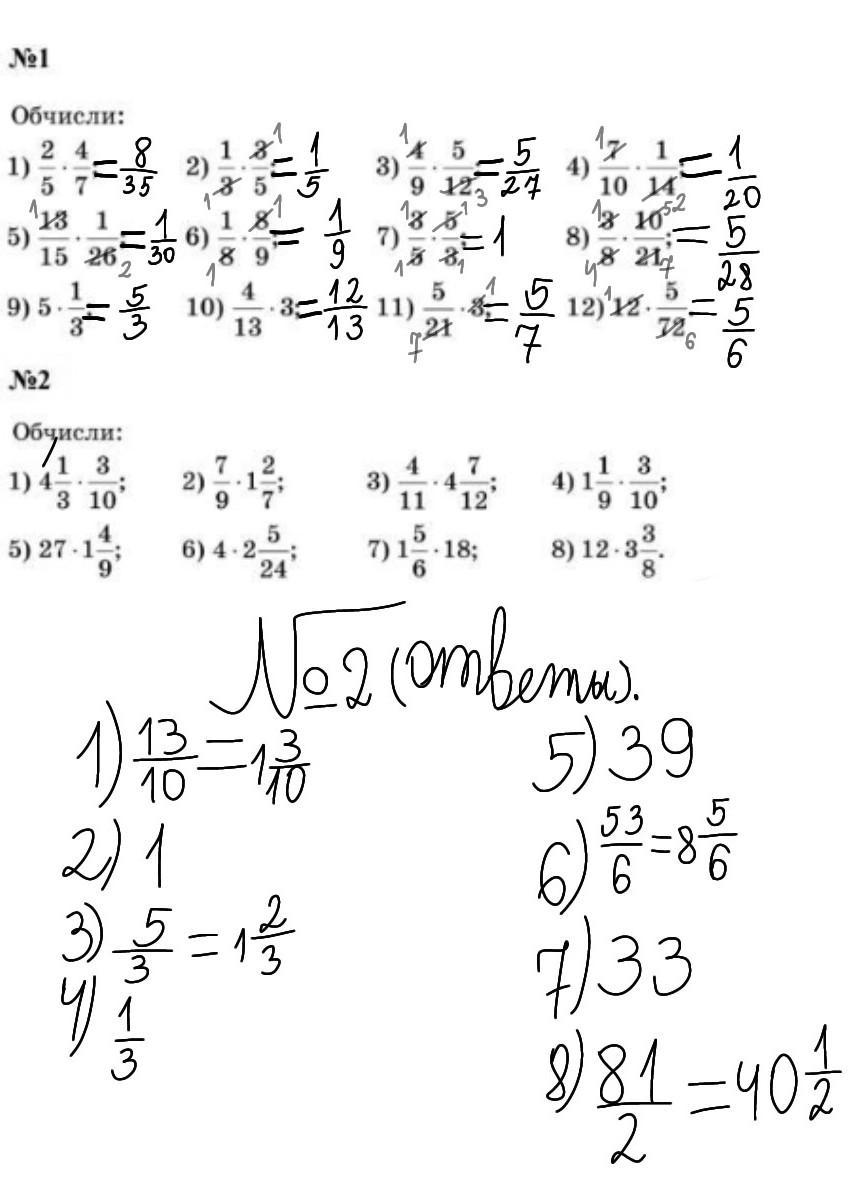 №1
Обчисли:
1) 2/5 · 4/7 = 8/35 2) 1/3 · 3/5 = 1/5 3) 4/9 · 5/12 = 5/27 4) 7/10 · 1/14 = 1/20
5) 13/15 · 1/26 = 1/30 6) 1/8 · 8/9 = 1/9 7) 3/5 · 5/3 = 1 8) 3/8 · 10/21; = 5/28
9) 5 · 1/3 = 5/3 10) 4/13 · 3 = 12/13 11) 5/21 · 3; = 5/7 12) 12 · 5/72 = 5/6
№2
Обчисли:
1) 4 1/3 · 3/10; 2) 7/9 · 1 2/7; 3) 4/11 · 4 7/12; 4) 1 1/9 · 3/10;
5) 27 · 1 4/9; 6) 4 · 2 5/24; 7) 1 5/6 · 18; 8) 12 · 3 3/8.
№2 (ответы).
1) 13/10 = 1 3/10
2) 1
3) 5/3 = 1 2/3
4) 1/3
5) 39
6) 53/6 = 8 5/6
7) 33
8) 81/2 = 40 1/2